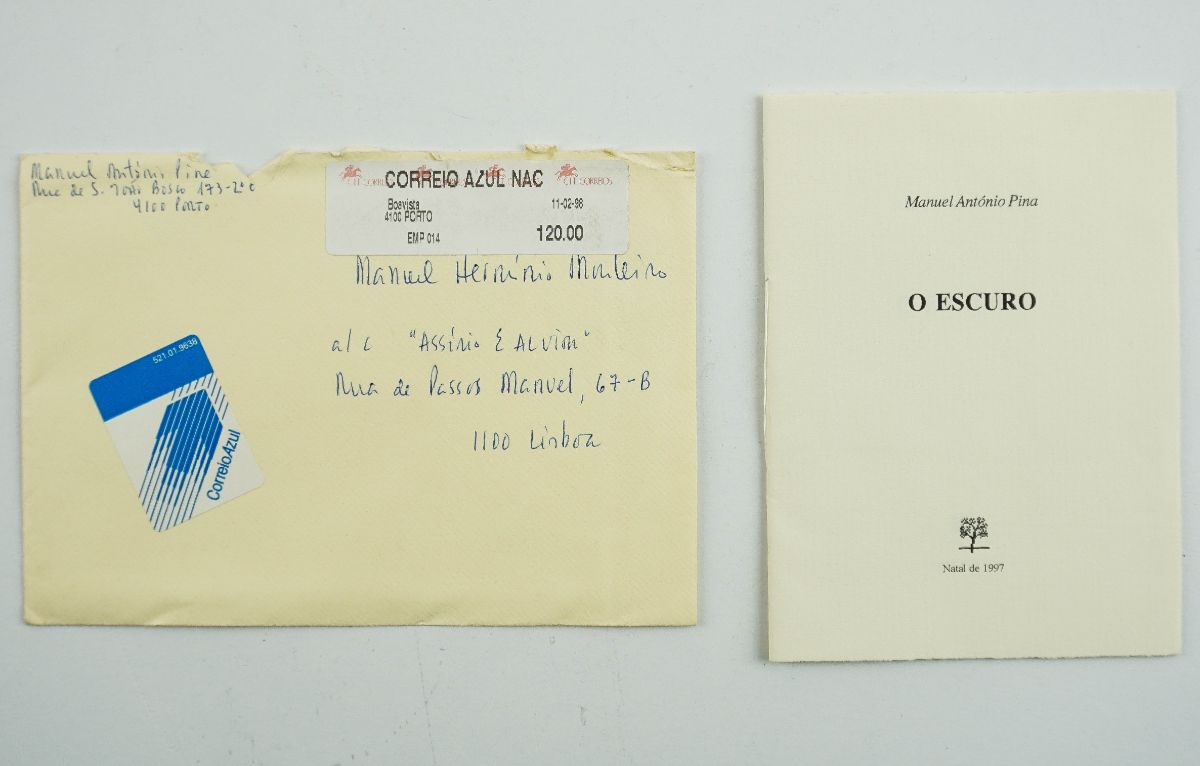 Manuel António Pina
Rua de S. João Bosco 173-2º C
4100 PORTO
CTT CORREIOS
CORREIO AZUL NAC
Boavista 11-02-98
4100 PORTO
EMP 014 120.00
Manuel Hermínio Monteiro
a/c "Assírio & ALVIM"
Rua de Passos Manuel, 67-B
1100 Lisboa
521.01.9638
Correio Azul
Manuel António Pina
O ESCURO
Natal de 1997